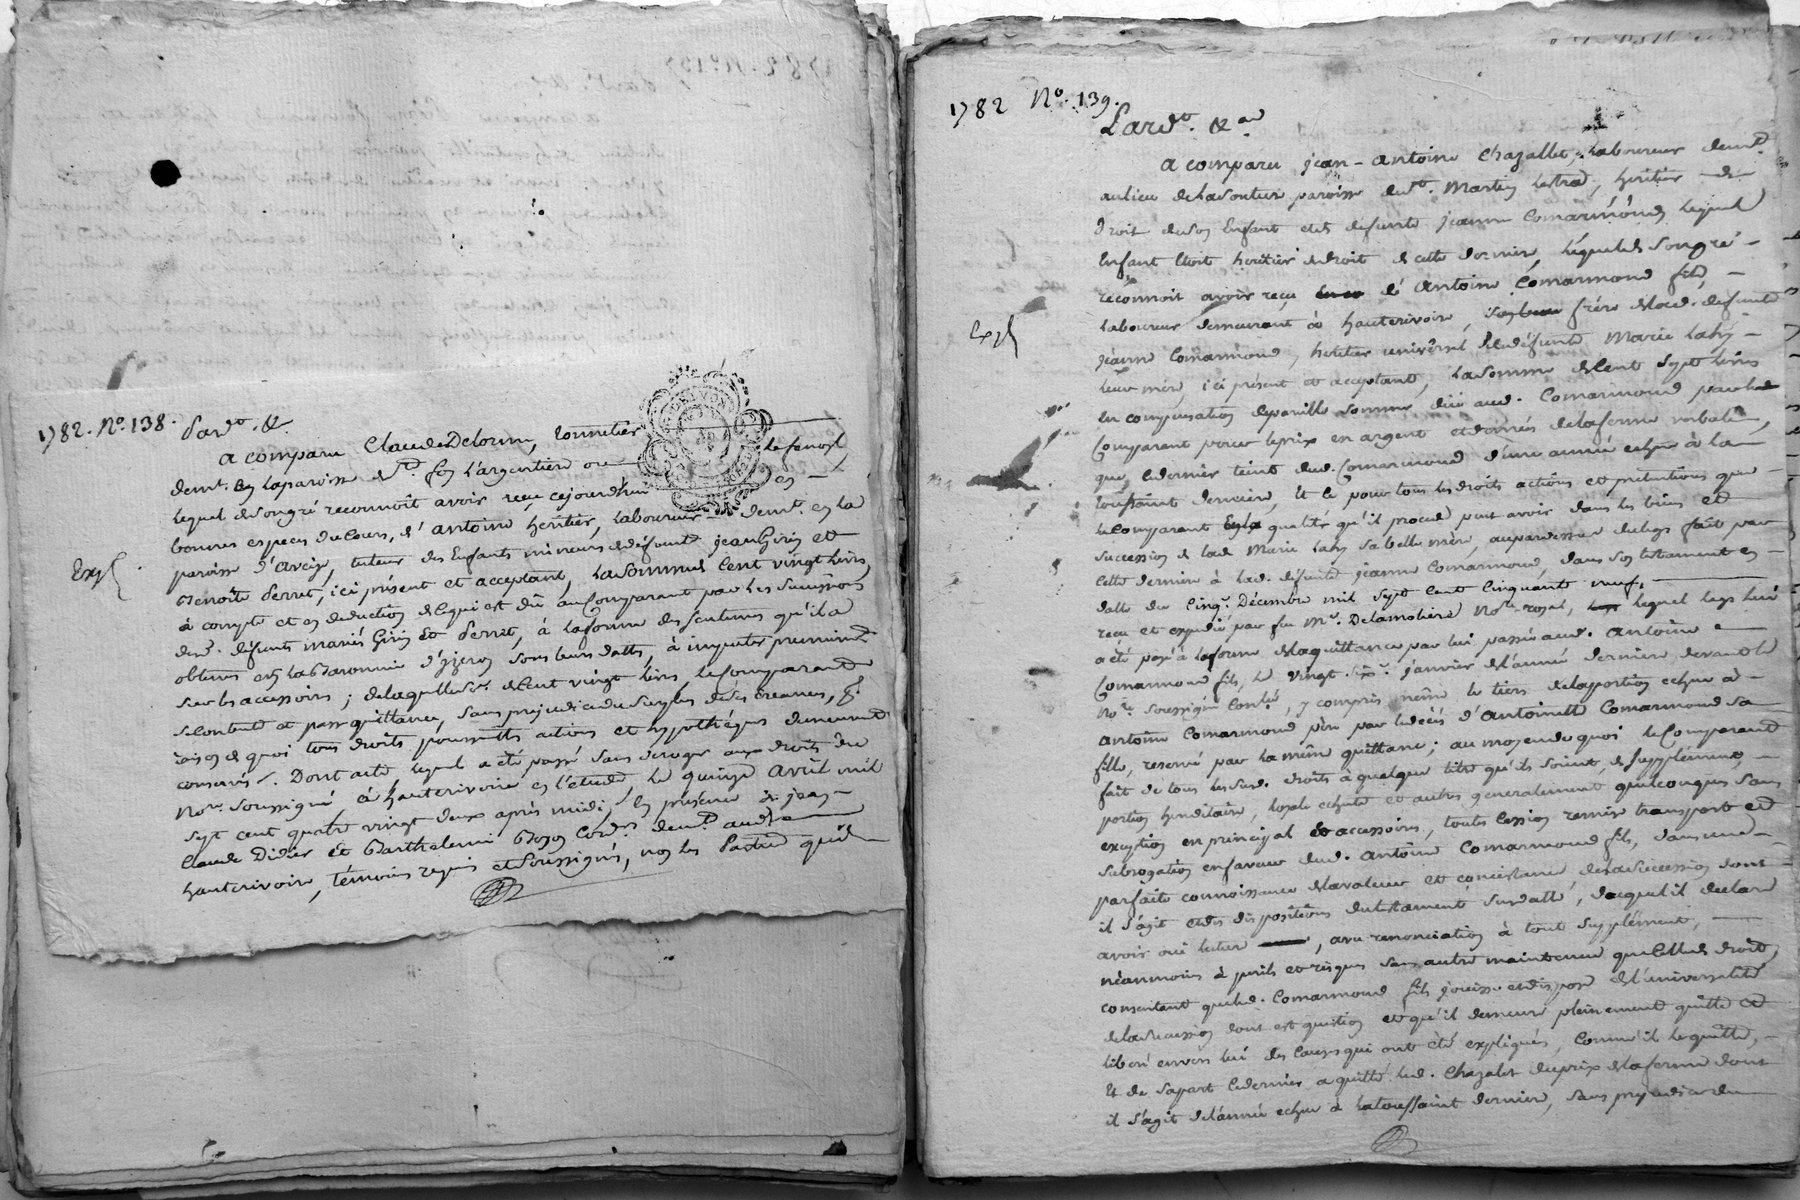 1782. No. 138.
Pardt. &.
a comparu Claude Delorme, tonnelier
demt. en la paroisse de St. foy l'argentiere
lequel de son gré reconnoit avoir reçu cejourd'hui en
bonnes especes du cours, d'antoine heritier, laboureur demt. en la
paroisse d'aveize, tuteur des Enfants mineurs de défunts jean Girin et
Benoite Perret, ici présent et acceptant, la somme de Cent vingt livres
Expé
à compte et en deduction de ce qui est dû au Comparant par les successions
desd. défunts mariés Girin et Perret, à la forme des sentences qu'il a
obtenu en la Baronnie d'yzeron sous leurs dattes, à imputer premierement
sur les accessoires ; de laquelle so.e de Cent vingt livres, le Comparant
se contente et passe quittance, sans prejudice du surplus de ses creances,
raison de quoi tous droits poursuittes actions et hypothéques demeurent
conservés. Dont acte, lequel a été passé sans deroger aux droits du
No.re soussigné, à hauterivoire en l'étude, le quinze avril mil
sept cent quatre vingt deux après midi, En présence de jean
Claude Didier et Barthelemi Bozon Cord.r demt. aud.
hauterivoire, témoins requis et soussignés, non les Parties qui
1782 No. 139.
Pardt. &a.
a comparu jean-antoine Chazallet, laboureur demt.
au lieu de la paroisse de St. Martin lestra, heritier de
droit de son Enfant et de defunte jeanne Comarmond, lequel
Enfant étoit heritier de droit de cette derniere, lequel de son gré
reconnoit avoir reçu d'Antoine Comarmond fils,
laboureur demeurant à hauterivoire, frère de lad. defunte
Expé
jeanne Comarmond, heritier universel de la défunte Marie
leur mère, ici présent et acceptant, la somme de Cent sept livres
en compensation de pareille somme due aud. Comarmond par led.
Comparant pour le prix en argent et denrées de la ferme verbale,
que ce dernier tient dud. Comarmond d'une année echue à la
toussaint derniere, Et ce pour tous les droits actions et prétentions que
le Comparant En la qualité qu'il procede peut avoir dans les biens et
succession de lad. Marie sa belle mère, au par dessus du legs fait par
cette derniere à lad. défunte jeanne Comarmond, dans son testament en
datte du Cinq Décembre mil sept cent Cinquante neuf,
reçu et expedié par feu Me. Delamoliere No.re royal, lequel legs lui
a été payé à la forme de la quittance par lui passée aud. antoine
Comarmond fils, le vingt six janvier de l'année derniere devant le
No.re soussigné Conlé, y compris même le tiers de la portion echue à
antoine Comarmond père par le décès d'Antoinette Comarmond sa
fille, reservé par la même quittance ; au moyen de quoi le Comparant
fait de tous les susd. droits à quelque titre qu'ils soient, de supplément,
portion hereditaire, loyale echute et autres generalement quelconques sans
exception en principal et accessoires, toutes cession remise transport et
subrogation en faveur dud. Antoine Comarmond fils, dans une
parfaite connoissance de la valeur et consistance de la succession dont
il s'agit et des dispositions du testament susdatté, duquel il declare
avoir oui lecture, avec renonciation à tout supplément,
néanmoins à perils et risques sans autre maintenue que celle de droit,
consentant que led. Comarmond fils jouisse et dispose de l'universalité
de la succession dont est question et qu'il demeure pleinement quitte et
liberé envers lui des causes qui ont été expliquées, Comme il le quitte,
Et de sa part Ce dernier a quitté led. Chazalet du prix de la ferme dont
il s'agit de l'année echue à la toussaint derniere, sans prejudice du